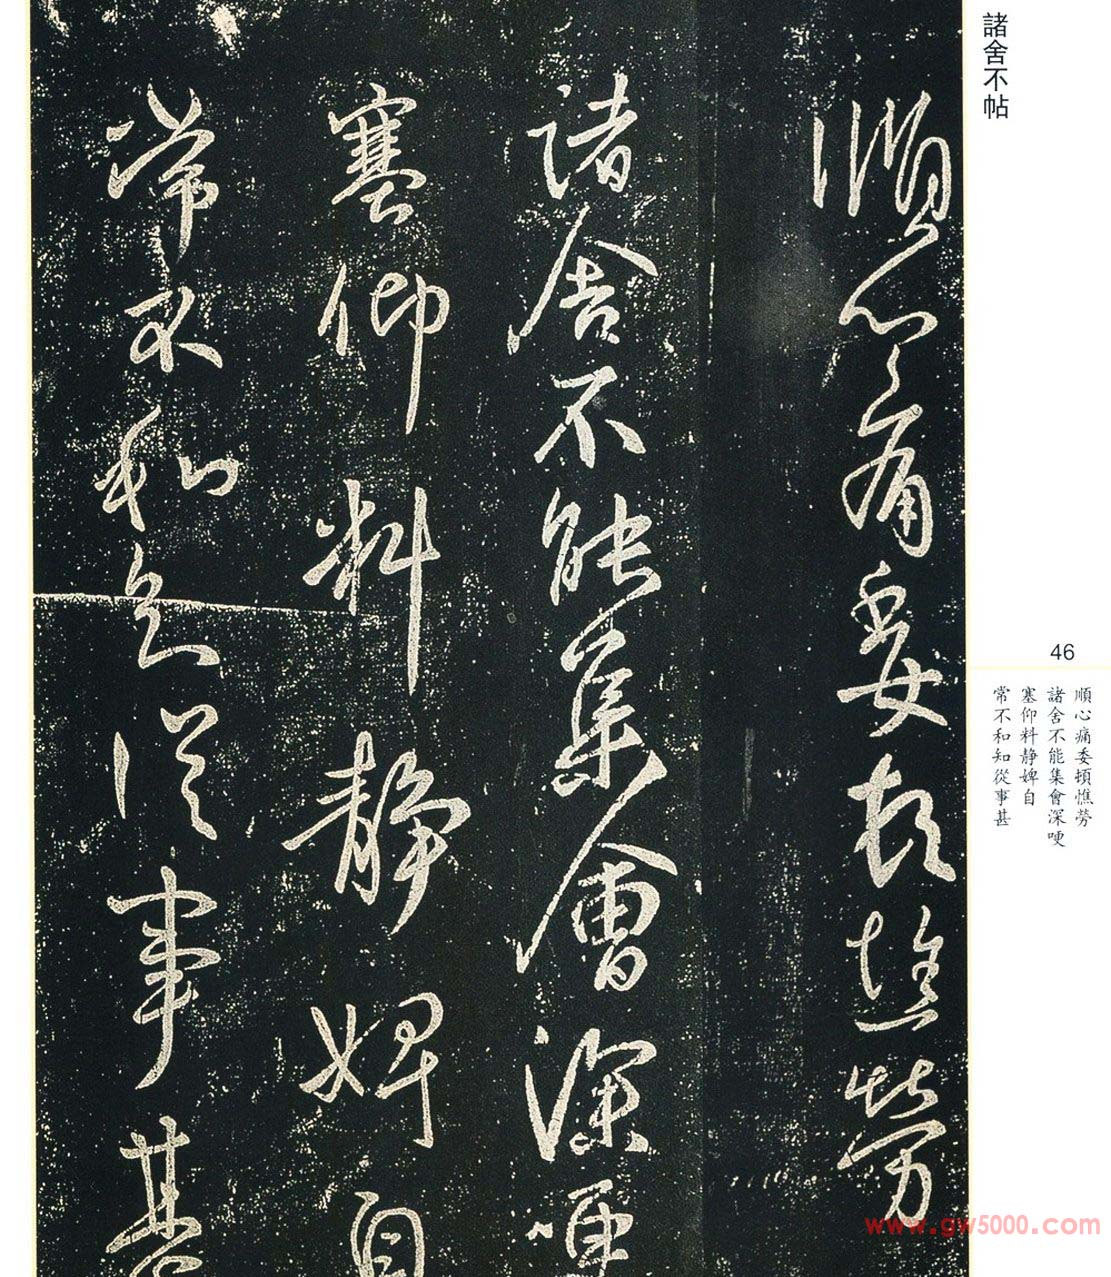 諸舍不帖
順心痛委頓憔勞
諸舍不能集會深哽
塞仰料静婢自
常不和知從事甚
46
順心痛委頓憔勞
諸舍不能集會深哽
塞仰料静婢自
常不和知從事甚
www.gw5000.com